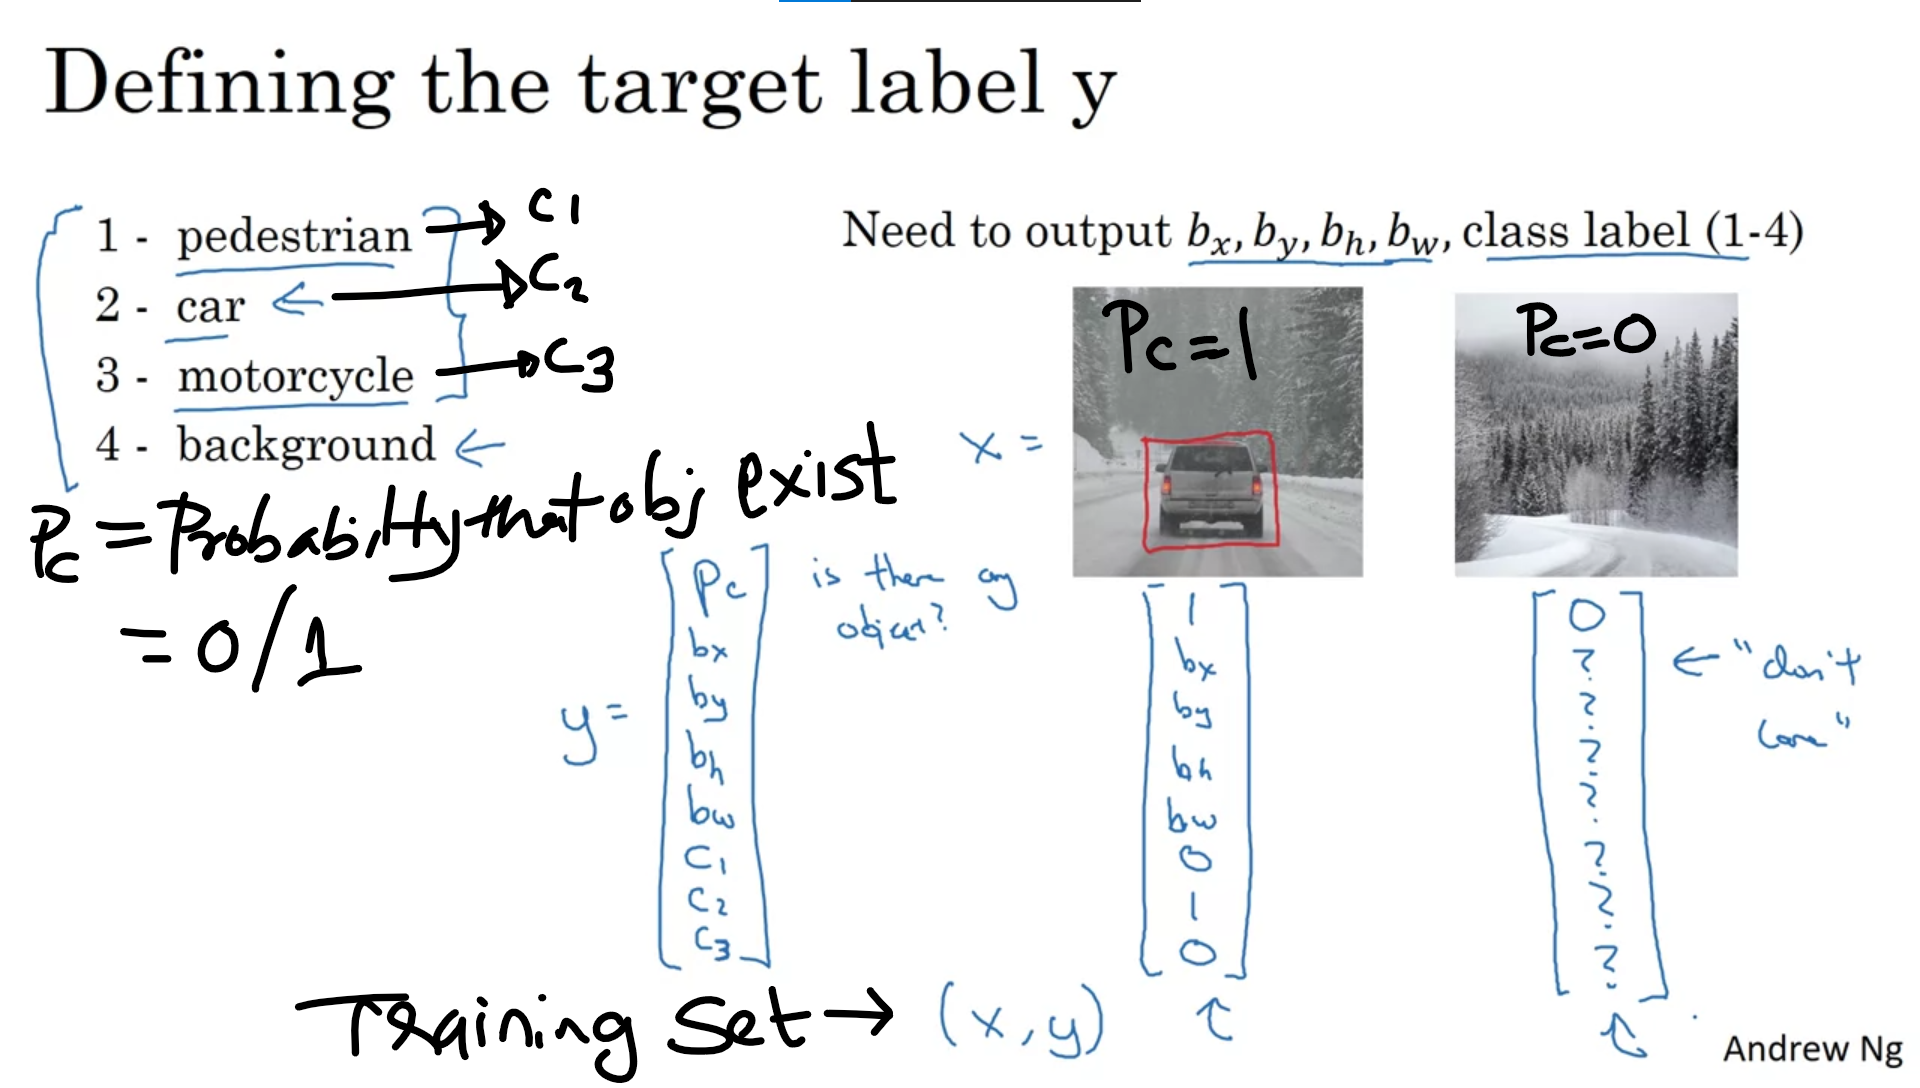 Defining the target label y
1 - pedestrian → C1
2 - car ← → C2
3 - motorcycle → C3
4 - background ←
Pc = Probability that obj exist
= 0/1
Need to output bx, by, bh, bw, class label (1-4)
x =
Pc=1
Pc=0
y =
Pc
bx
by
bh
bw
C1
C2
C3
is there any
object?
1
bx
by
bh
bw
0
1
0
0
?
?
?
?
?
?
?
← "don't
care"
Training Set → (x, y)
Andrew Ng